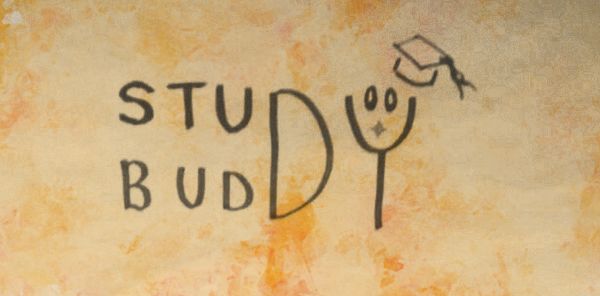 STUDY
BUDDY